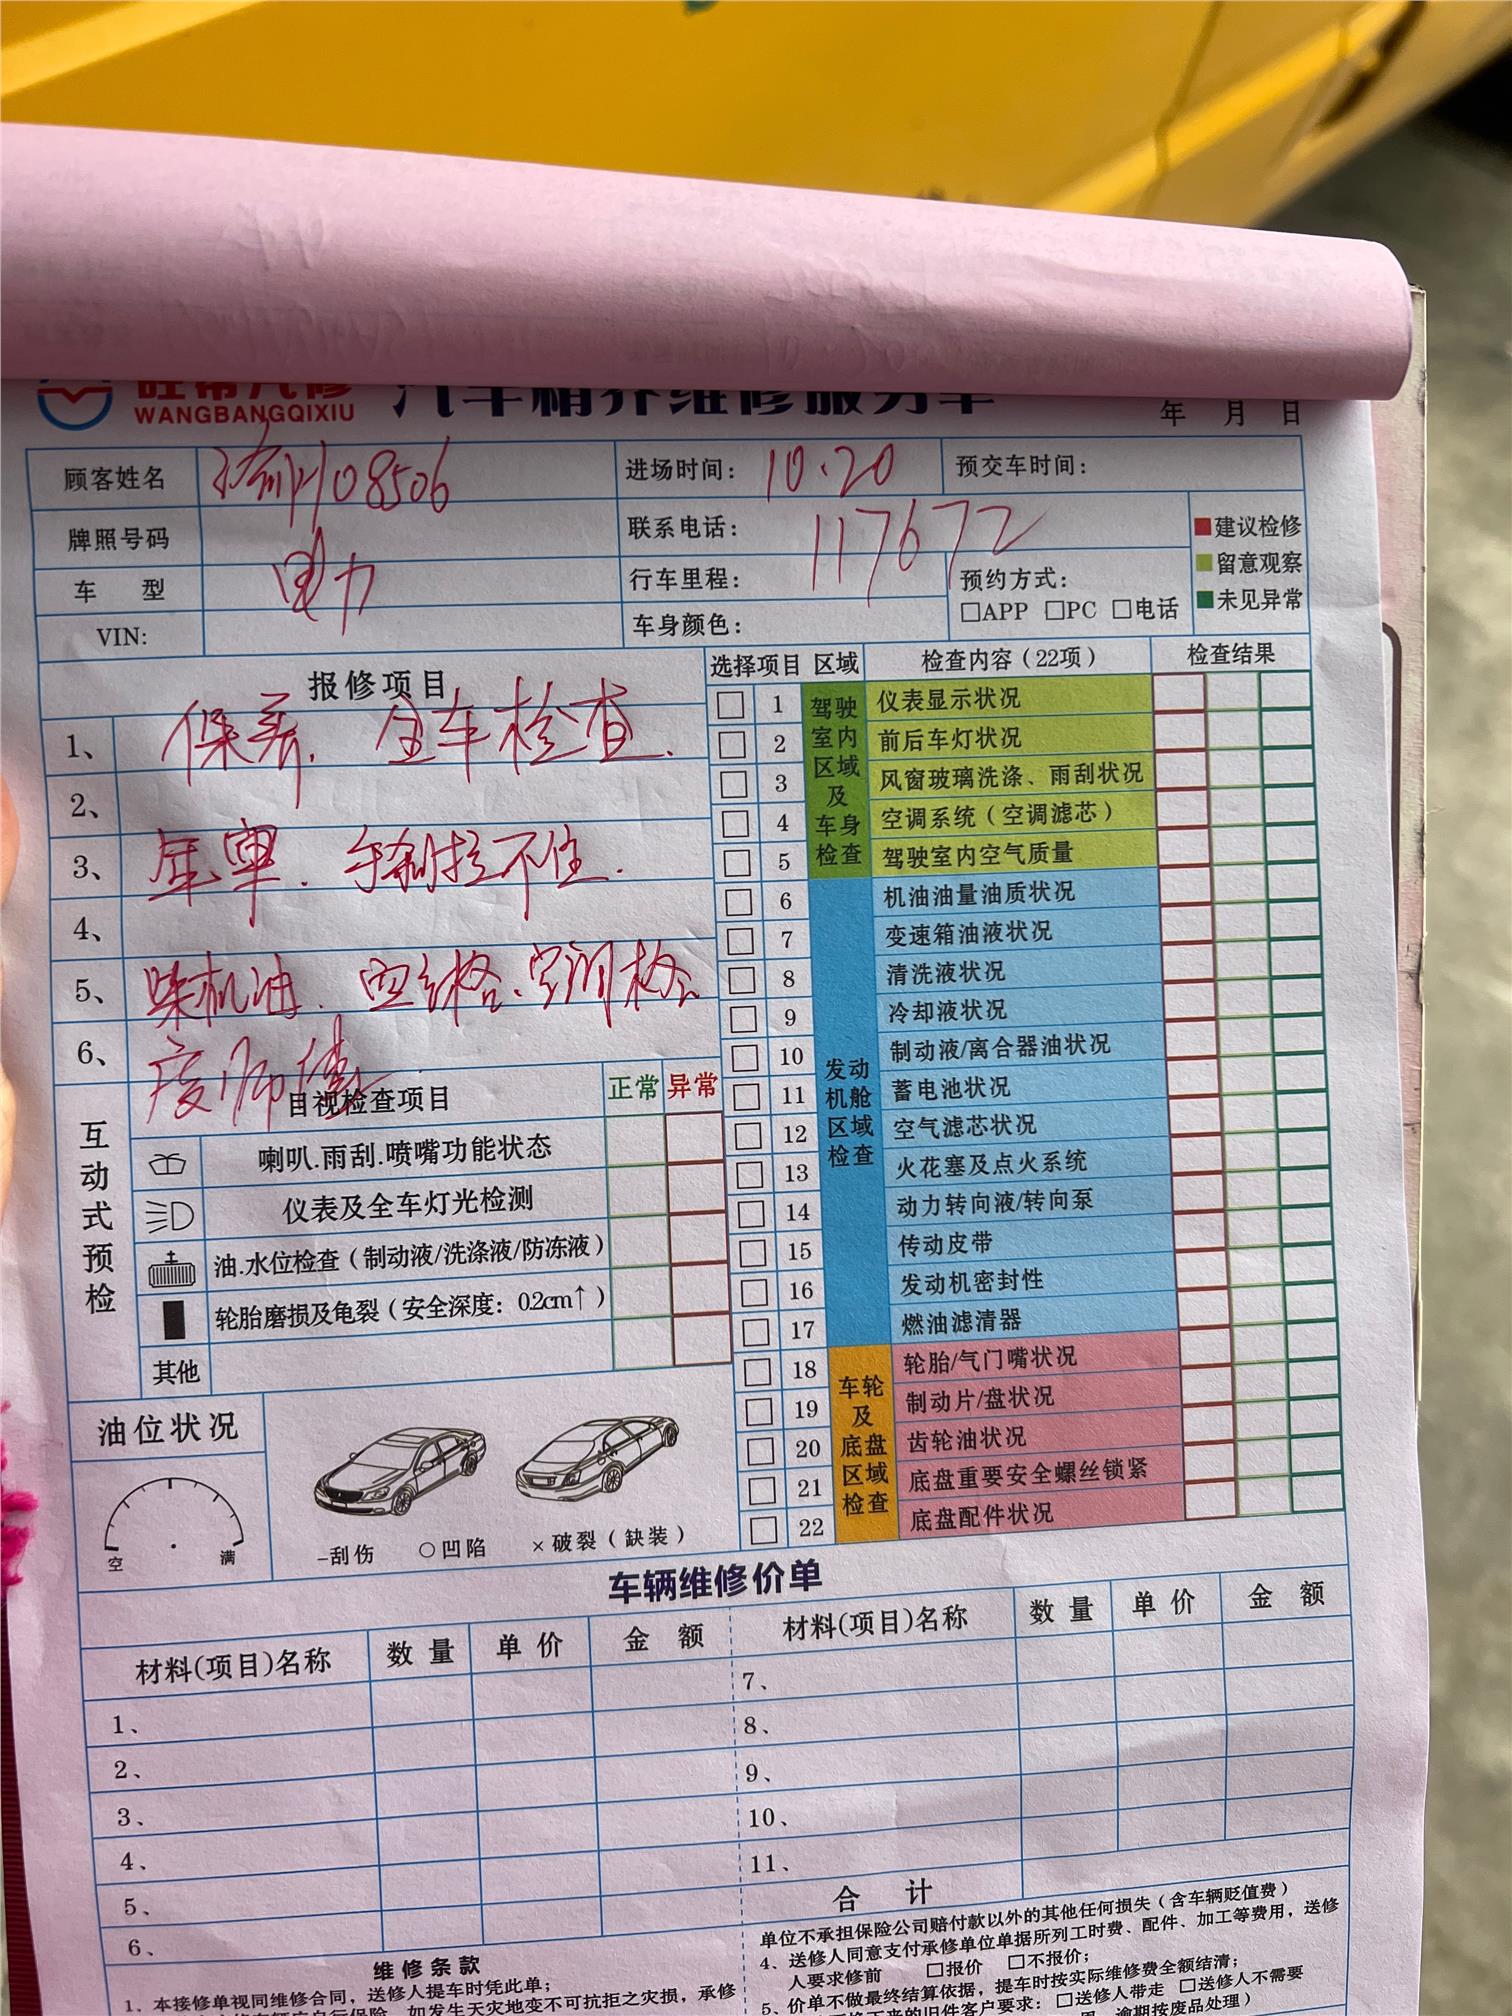 旺帮汽修 汽车精养维修服务单
WANGBANGQIXIU
年 月 日
顾客姓名 08506
进场时间： 10.20
预交车时间：
牌照号码
联系电话： 117672
车 型 电力
行车里程：
预约方式：
□APP □PC □电话
VIN:
车身颜色：
建议检修
留意观察
未见异常
报修项目
1、 保养. 全车检查.
2、
3、 年审. 手刹拉不住.
4、
5、 柴机油. 空气格、空调格
6、
互动式预检
目视检查项目 正常 异常
喇叭.雨刮.喷嘴功能状态
仪表及全车灯光检测
油.水位检查（制动液/洗涤液/防冻液）
轮胎磨损及龟裂（安全深度：0.2cm↑）
其他
油位状况
空 满
-刮伤 ○凹陷 ×破裂（缺装）
选择项目 区域 检查内容（22项） 检查结果
驾驶室内区域及车身检查
1 仪表显示状况
2 前后车灯状况
3 风窗玻璃洗涤、雨刮状况
4 空调系统（空调滤芯）
5 驾驶室内空气质量
发动机舱区域检查
6 机油油量油质状况
7 变速箱油液状况
8 清洗液状况
9 冷却液状况
10 制动液/离合器油状况
11 蓄电池状况
12 空气滤芯状况
13 火花塞及点火系统
14 动力转向液/转向泵
15 传动皮带
16 发动机密封性
17 燃油滤清器
车轮及底盘区域检查
18 轮胎/气门嘴状况
19 制动片/盘状况
20 齿轮油状况
21 底盘重要安全螺丝锁紧
22 底盘配件状况
车辆维修价单
材料(项目)名称 数量 单价 金额
1、
2、
3、
4、
5、
6、
材料(项目)名称 数量 单价 金额
7、
8、
9、
10、
11、
合 计
维修条款
1、本接修单视同维修合同，送修人提车时凭此单；
如发生天灾地变不可抗拒之灾损，承修
单位不承担保险公司赔付款以外的其他任何损失（含车辆贬值费）
4、送修人同意支付承修单位单据所列工时费、配件、加工等费用，送修
人要求修前 □报价 □不报价；
5、价单不做最终结算依据，提车时按实际维修费全额结清；
旧件客户要求：□送修人带走 □送修人不需要
逾期按废品处理）